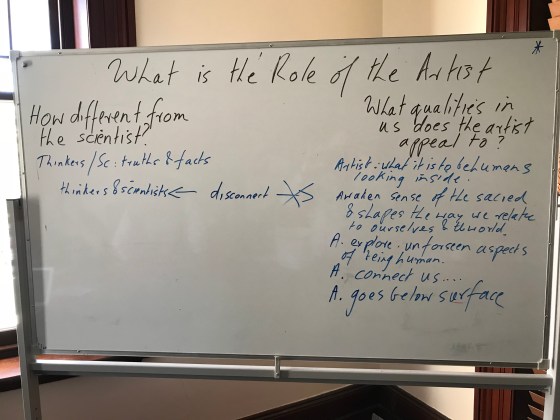 *
What is the Role of the Artist
How different from
the scientist?
Thinkers/Sc: truths & facts
thinkers & scientists ← disconnect
What qualities in
us does the artist
appeal to?
Artist: what it is to be human &
looking inside.
Awaken sense of the sacred
& shapes the way we relate
to ourselves & world.
A. explore. unforseen aspects
of being human.
A. connect us....
A. goes below surface